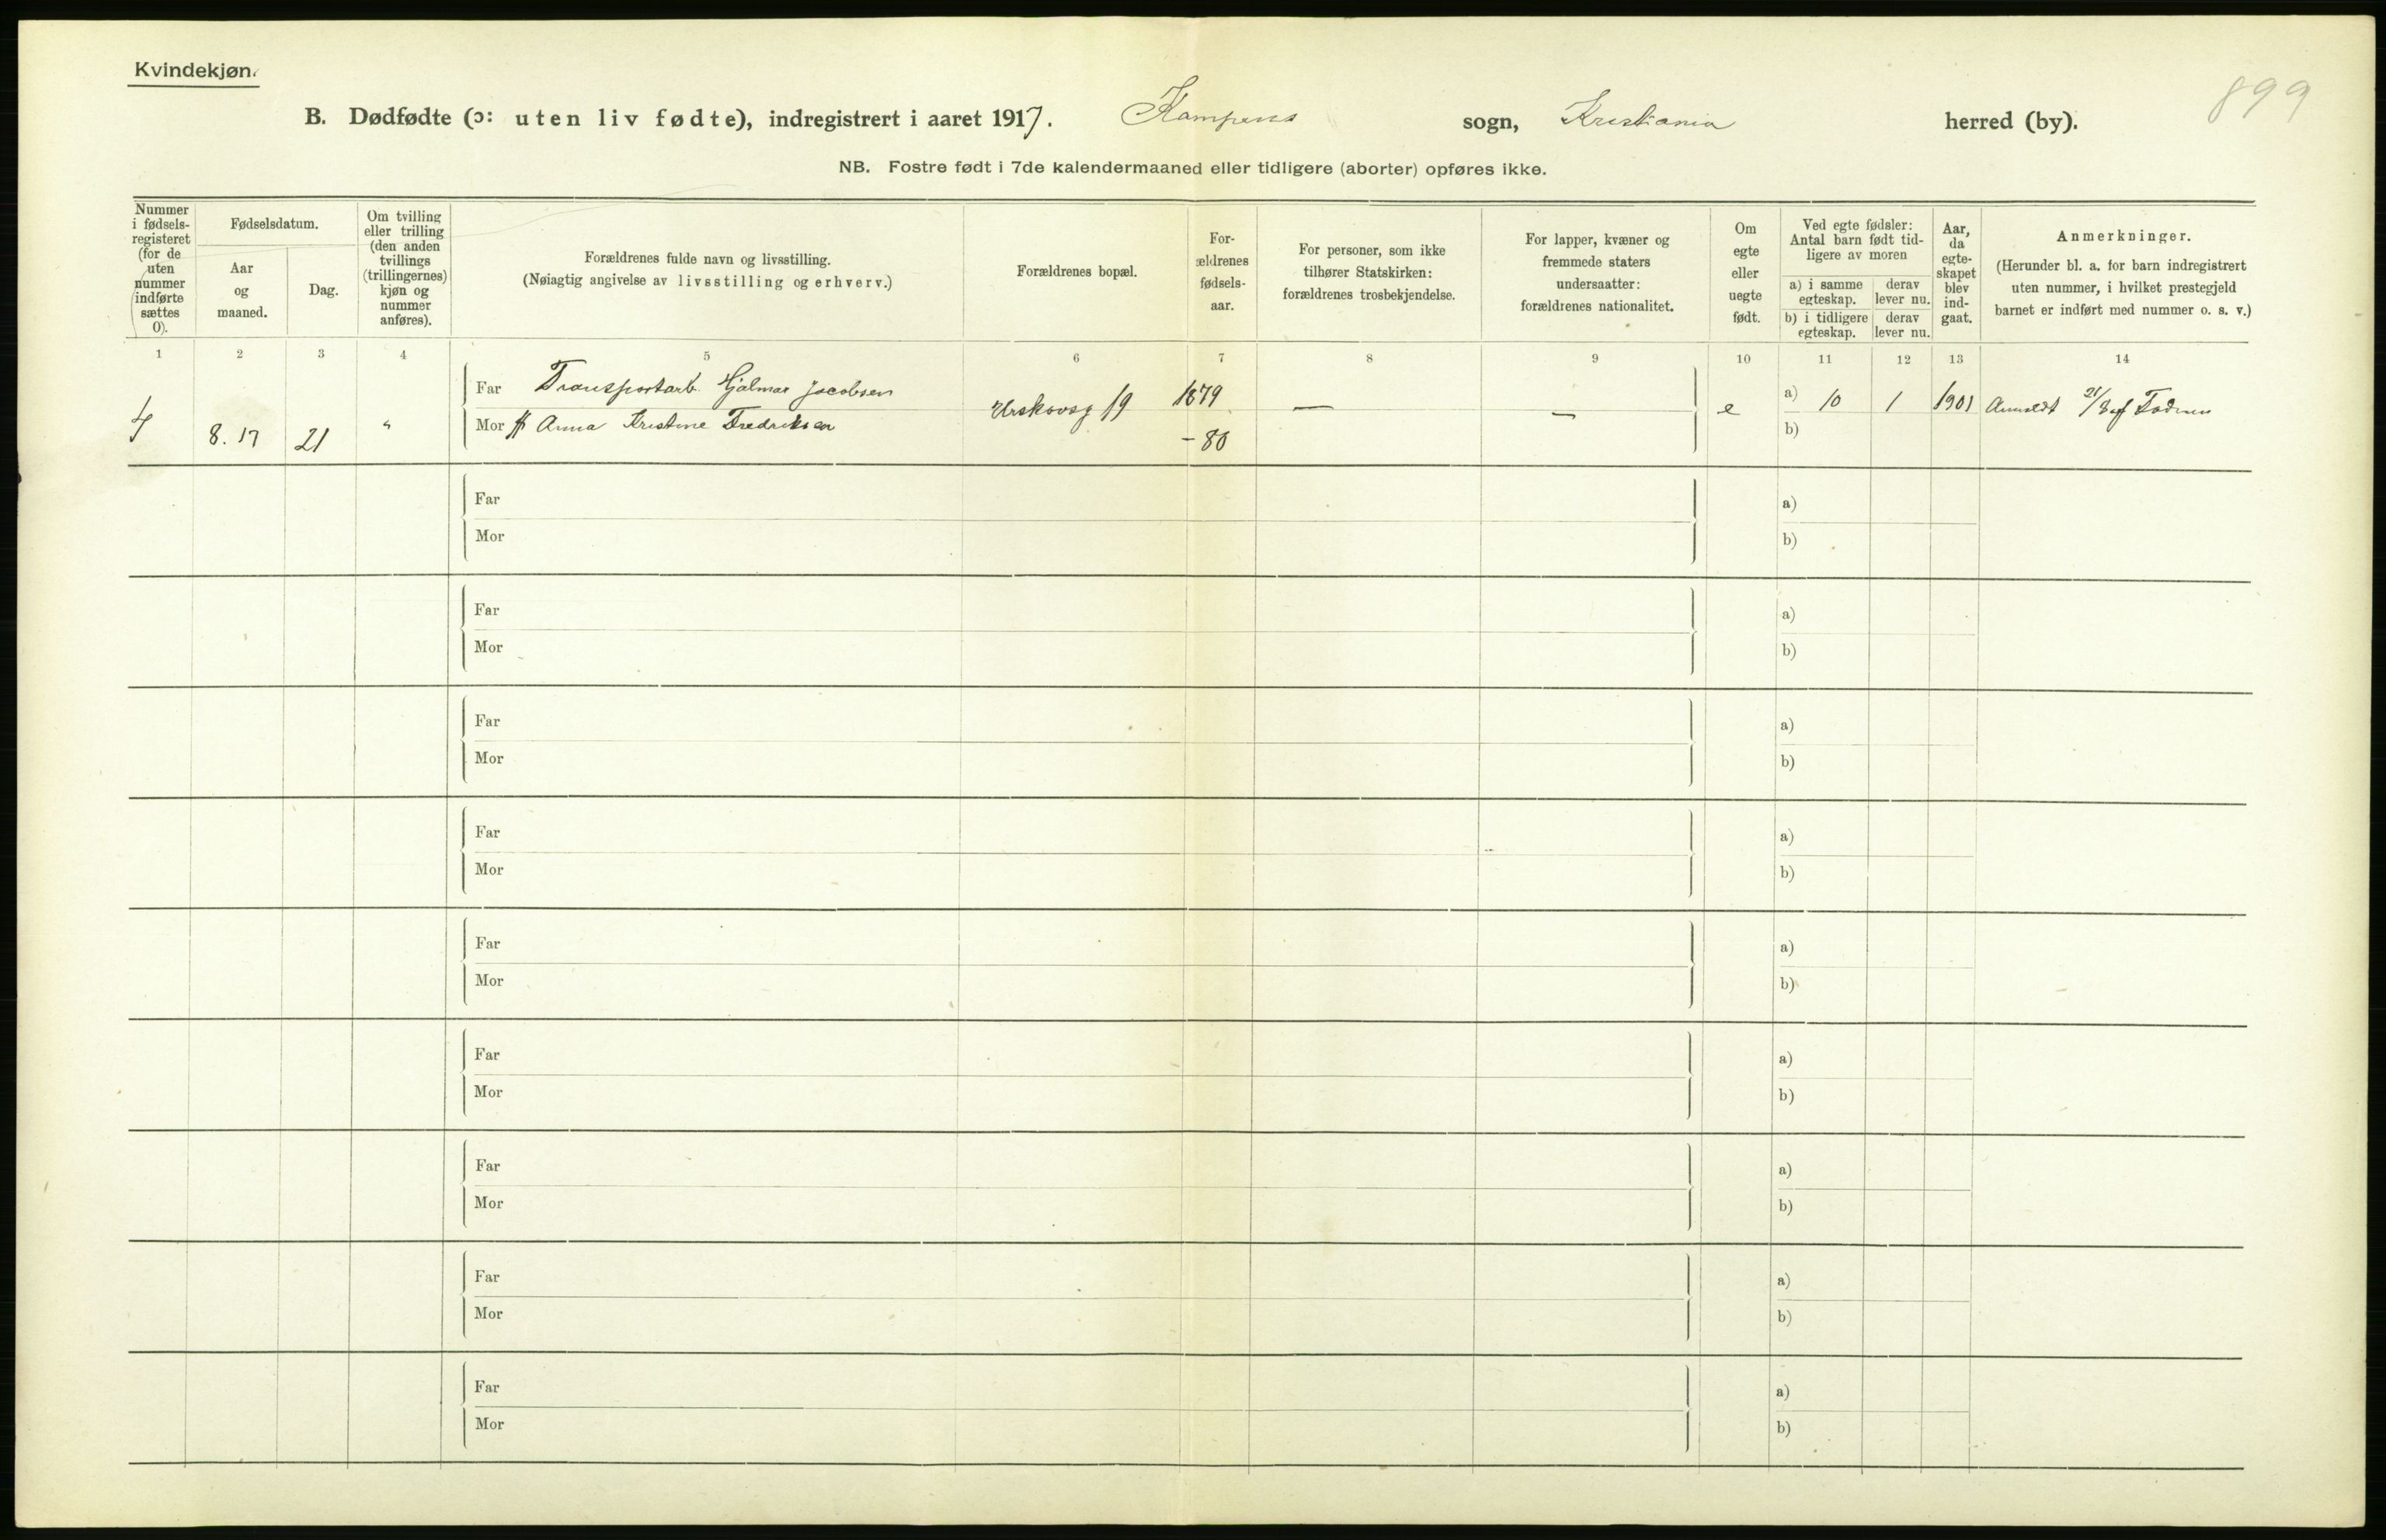 Kvindekjøn.
899
B. Dødfødte (ɔ: uten liv fødte), indregistrert i aaret 1917. Kampens sogn, Kristiania herred (by).
NB. Fostre født i 7de kalendermaaned eller tidligere (aborter) opføres ikke.
Nummer i fødsels-registeret (for de uten nummer indførte sættes 0).
Fødselsdatum.
Aar og maaned.
Dag.
Om tvilling eller trilling (den anden tvillings (trillingernes) kjøn og nummer anføres).
Forældrenes fulde navn og livsstilling.
(Nøiagtig angivelse av livsstilling og erhverv.)
Forældrenes bopæl.
For-ældrenes fødsels-aar.
For personer, som ikke tilhører Statskirken: forældrenes trosbekjendelse.
For lapper, kvæner og fremmede staters undersaatter: forældrenes nationalitet.
Om egte eller uegte født.
Ved egte fødsler: Antal barn født tid-ligere av moren
a) i samme egteskap.
derav lever nu.
b) i tidligere egteskap.
derav lever nu.
Aar, da egte-skapet blev ind-gaat.
Anmerkninger.
(Herunder bl. a. for barn indregistrert uten nummer, i hvilket prestegjeld barnet er indført med nummer o. s. v.)
1 2 3 4 5 6 7 8 9 10 11 12 13 14
Far Transportarb. Hjalmar Jacobsen 1879
4 8. 17 21 " Urskovsg 19 — — e a) 10 1 1901 Anmeldt 21/8 af Jordmor
Mor Anna Kristine Fredriksen - 80 b)
Far a)
Mor b)
Far a)
Mor b)
Far a)
Mor b)
Far a)
Mor b)
Far a)
Mor b)
Far a)
Mor b)
Far a)
Mor b)
Far a)
Mor b)
Far a)
Mor b)